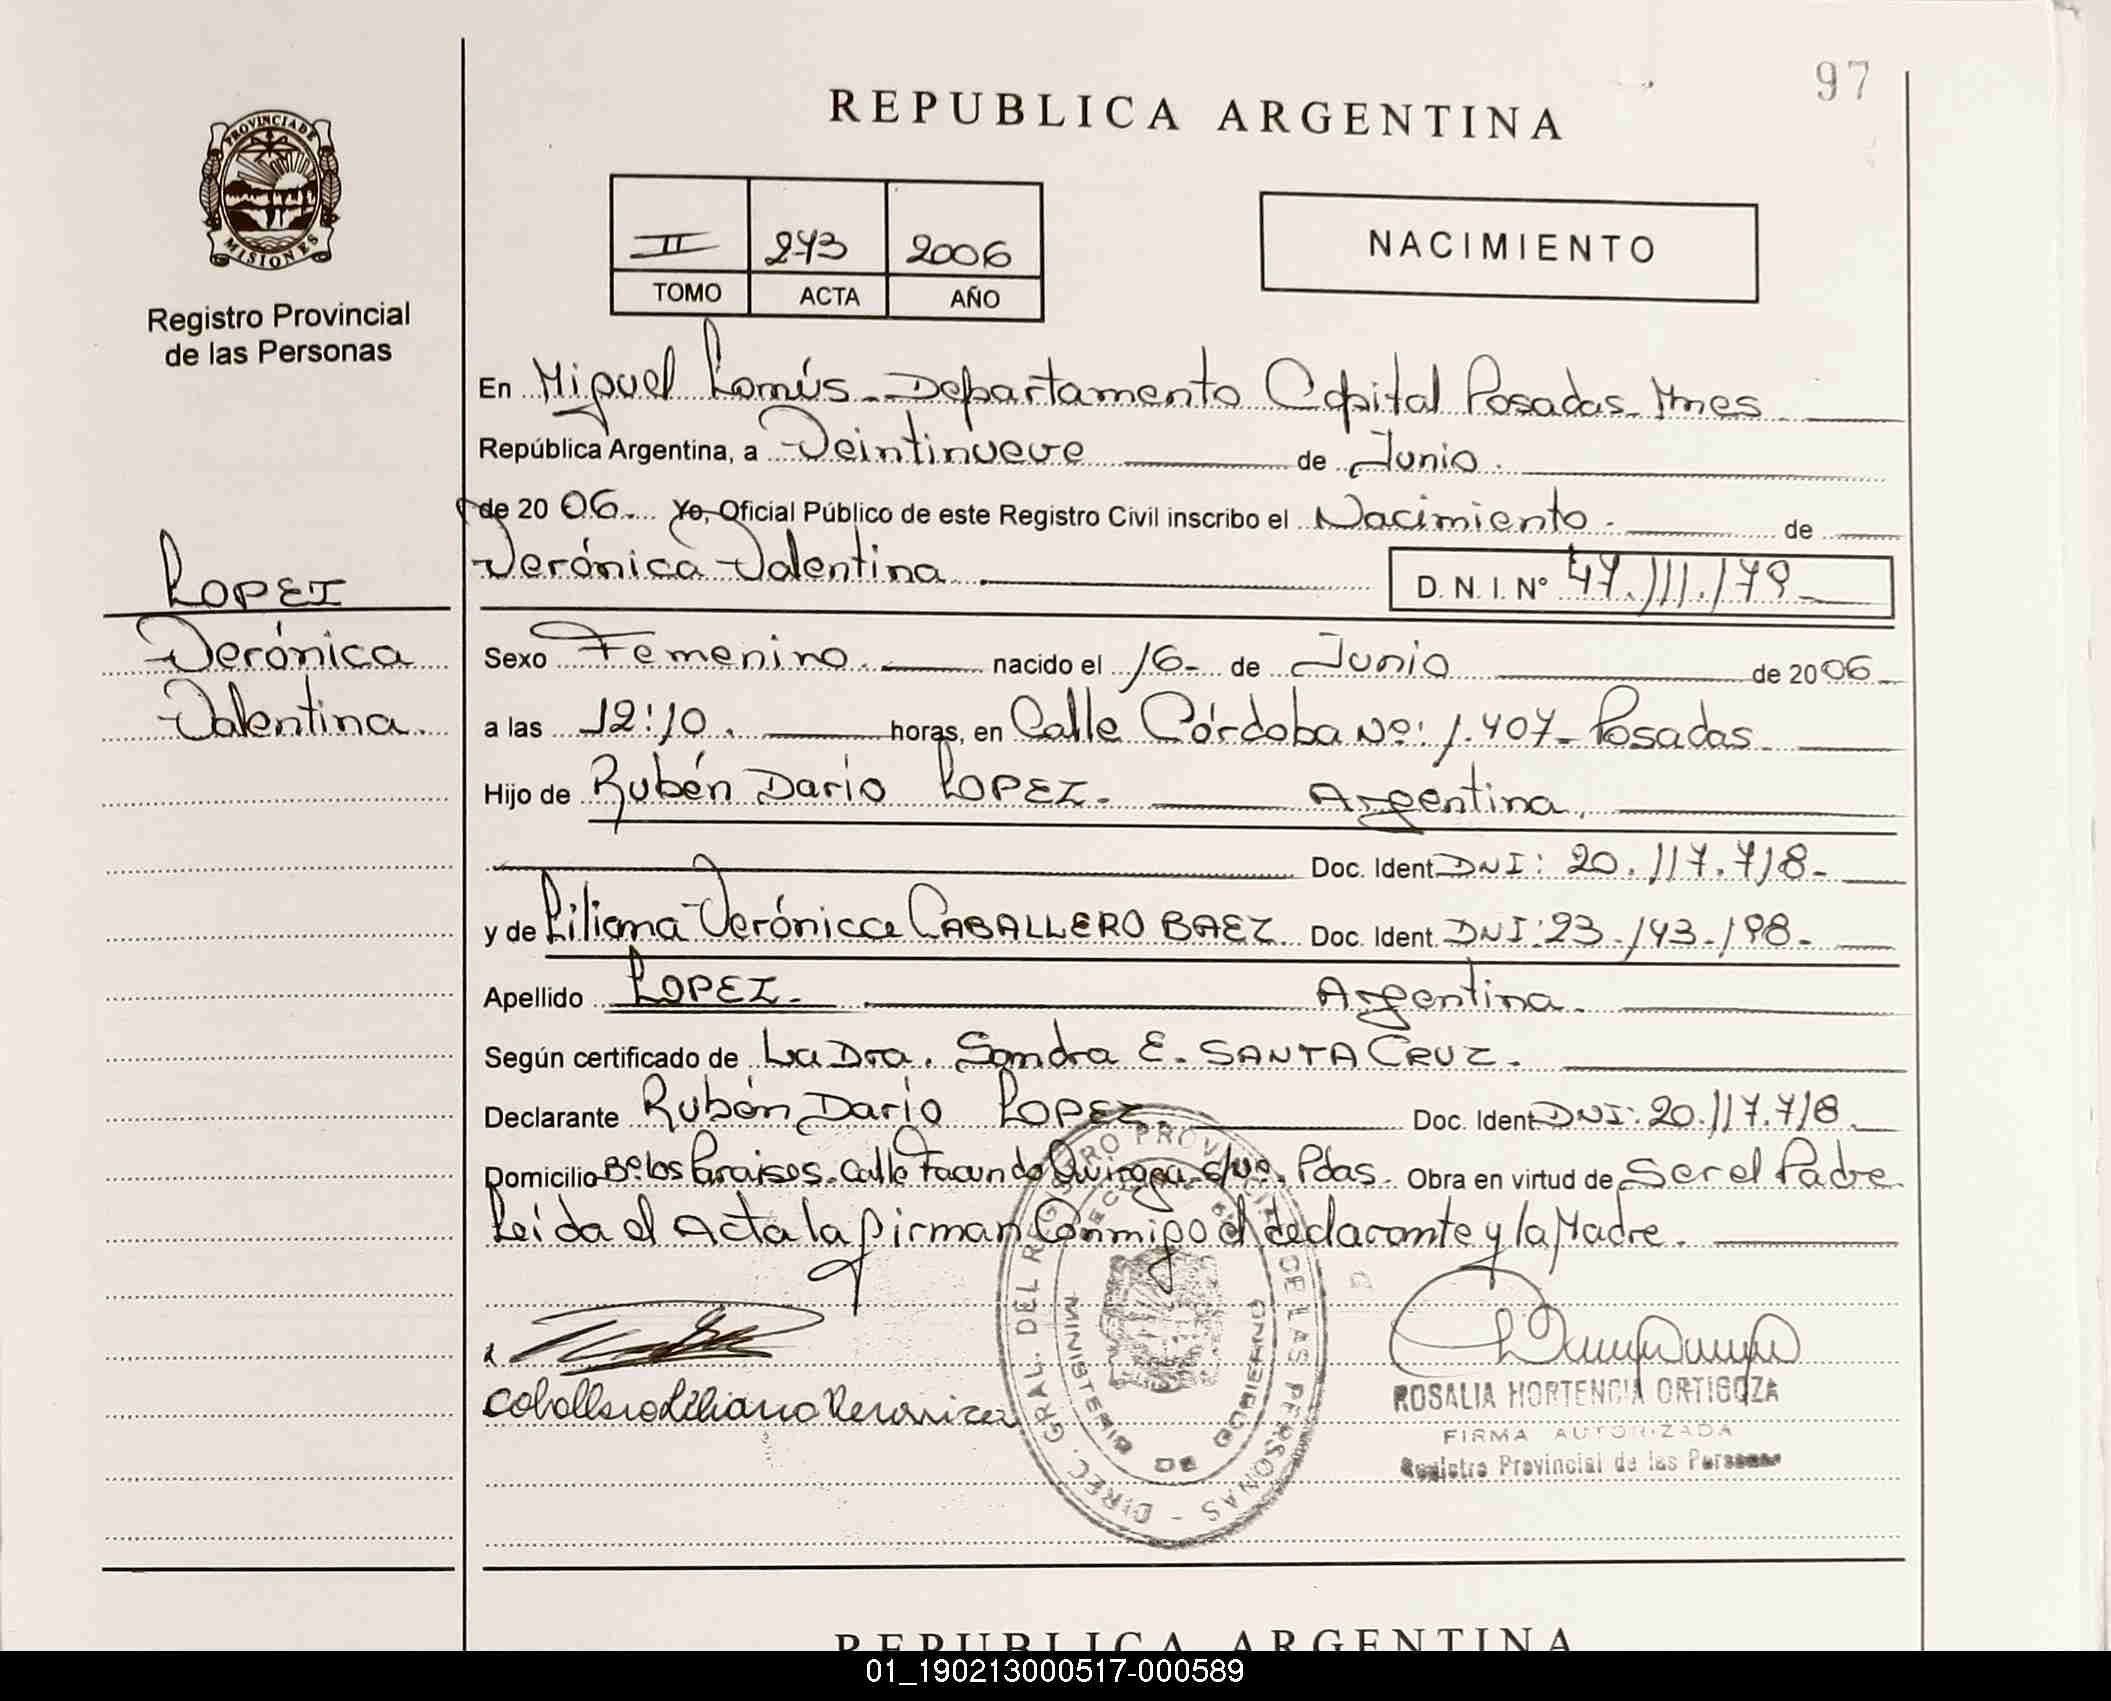 97
REPUBLICA ARGENTINA
PROVINCIA DE
MISIONES
Registro Provincial
de las Personas
II 243 2006
TOMO ACTA AÑO
NACIMIENTO
En Miguel Lanús - Departamento Capital Posadas - Mnes
República Argentina, a Veintinueve de Junio.
de 2006. Yo, Oficial Público de este Registro Civil inscribo el Nacimiento. de
Verónica Valentina
D. N. I. Nº 47.111.179
LOPEZ
Verónica
Valentina.
Sexo Femenino. nacido el 16 - de Junio de 2006
a las 12:10. horas, en Calle Córdoba Nº: 1.407 - Posadas
Hijo de Rubén Darío LOPEZ. Argentina.
Doc. Ident. DNI: 20.117.718 -
y de Liliana Verónica CABALLERO BAEZ Doc. Ident. DNI: 23.143.198 -
Apellido LOPEZ. Argentina.
Según certificado de La Dra. Sandra E. SANTA CRUZ.
Declarante Rubén Darío LOPEZ Doc. Ident DNI: 20.117.718.
Domicilio Bº los Paraisos. Calle Facundo Quiroga s/nº. Pdas. Obra en virtud de Ser el Padre
Leída el Acta la firman Conmigo el declarante y la Madre.
Caballero Liliana Veronica
DIREC. GRAL. DEL REGISTRO PROVINCIAL DE LAS PERSONAS
MINISTERIO DE GOBIERNO
ROSALIA HORTENCIA ORTIGOZA
FIRMA AUTORIZADA
Registro Provincial de las Personas
REPUBLICA ARGENTINA
01_190213000517-000589